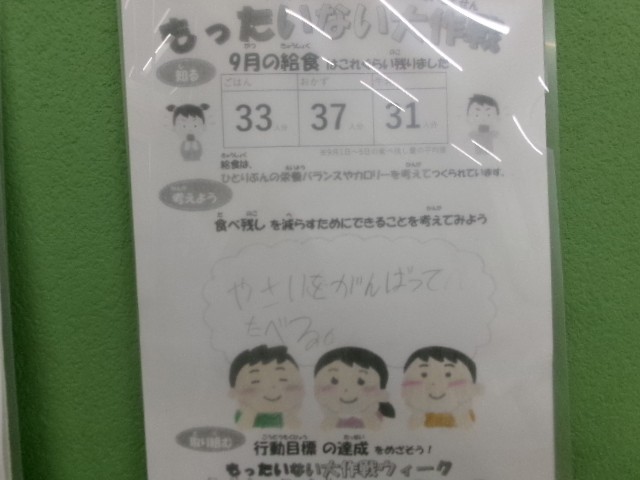 もったいない大作戦
知る
9月の給食 はこれくらい残りました
ごはん おかず
33人分 37人分 31人分
給食は、
ひとりぶんの栄養バランスやカロリーを考えてつくられています。
考えよう
食べ残し を減らすためにできることを考えてみよう
やさいをがんばって
たべる。
取り組む
行動目標 の達成 をめざそう!
もったいない大作戦ウィーク